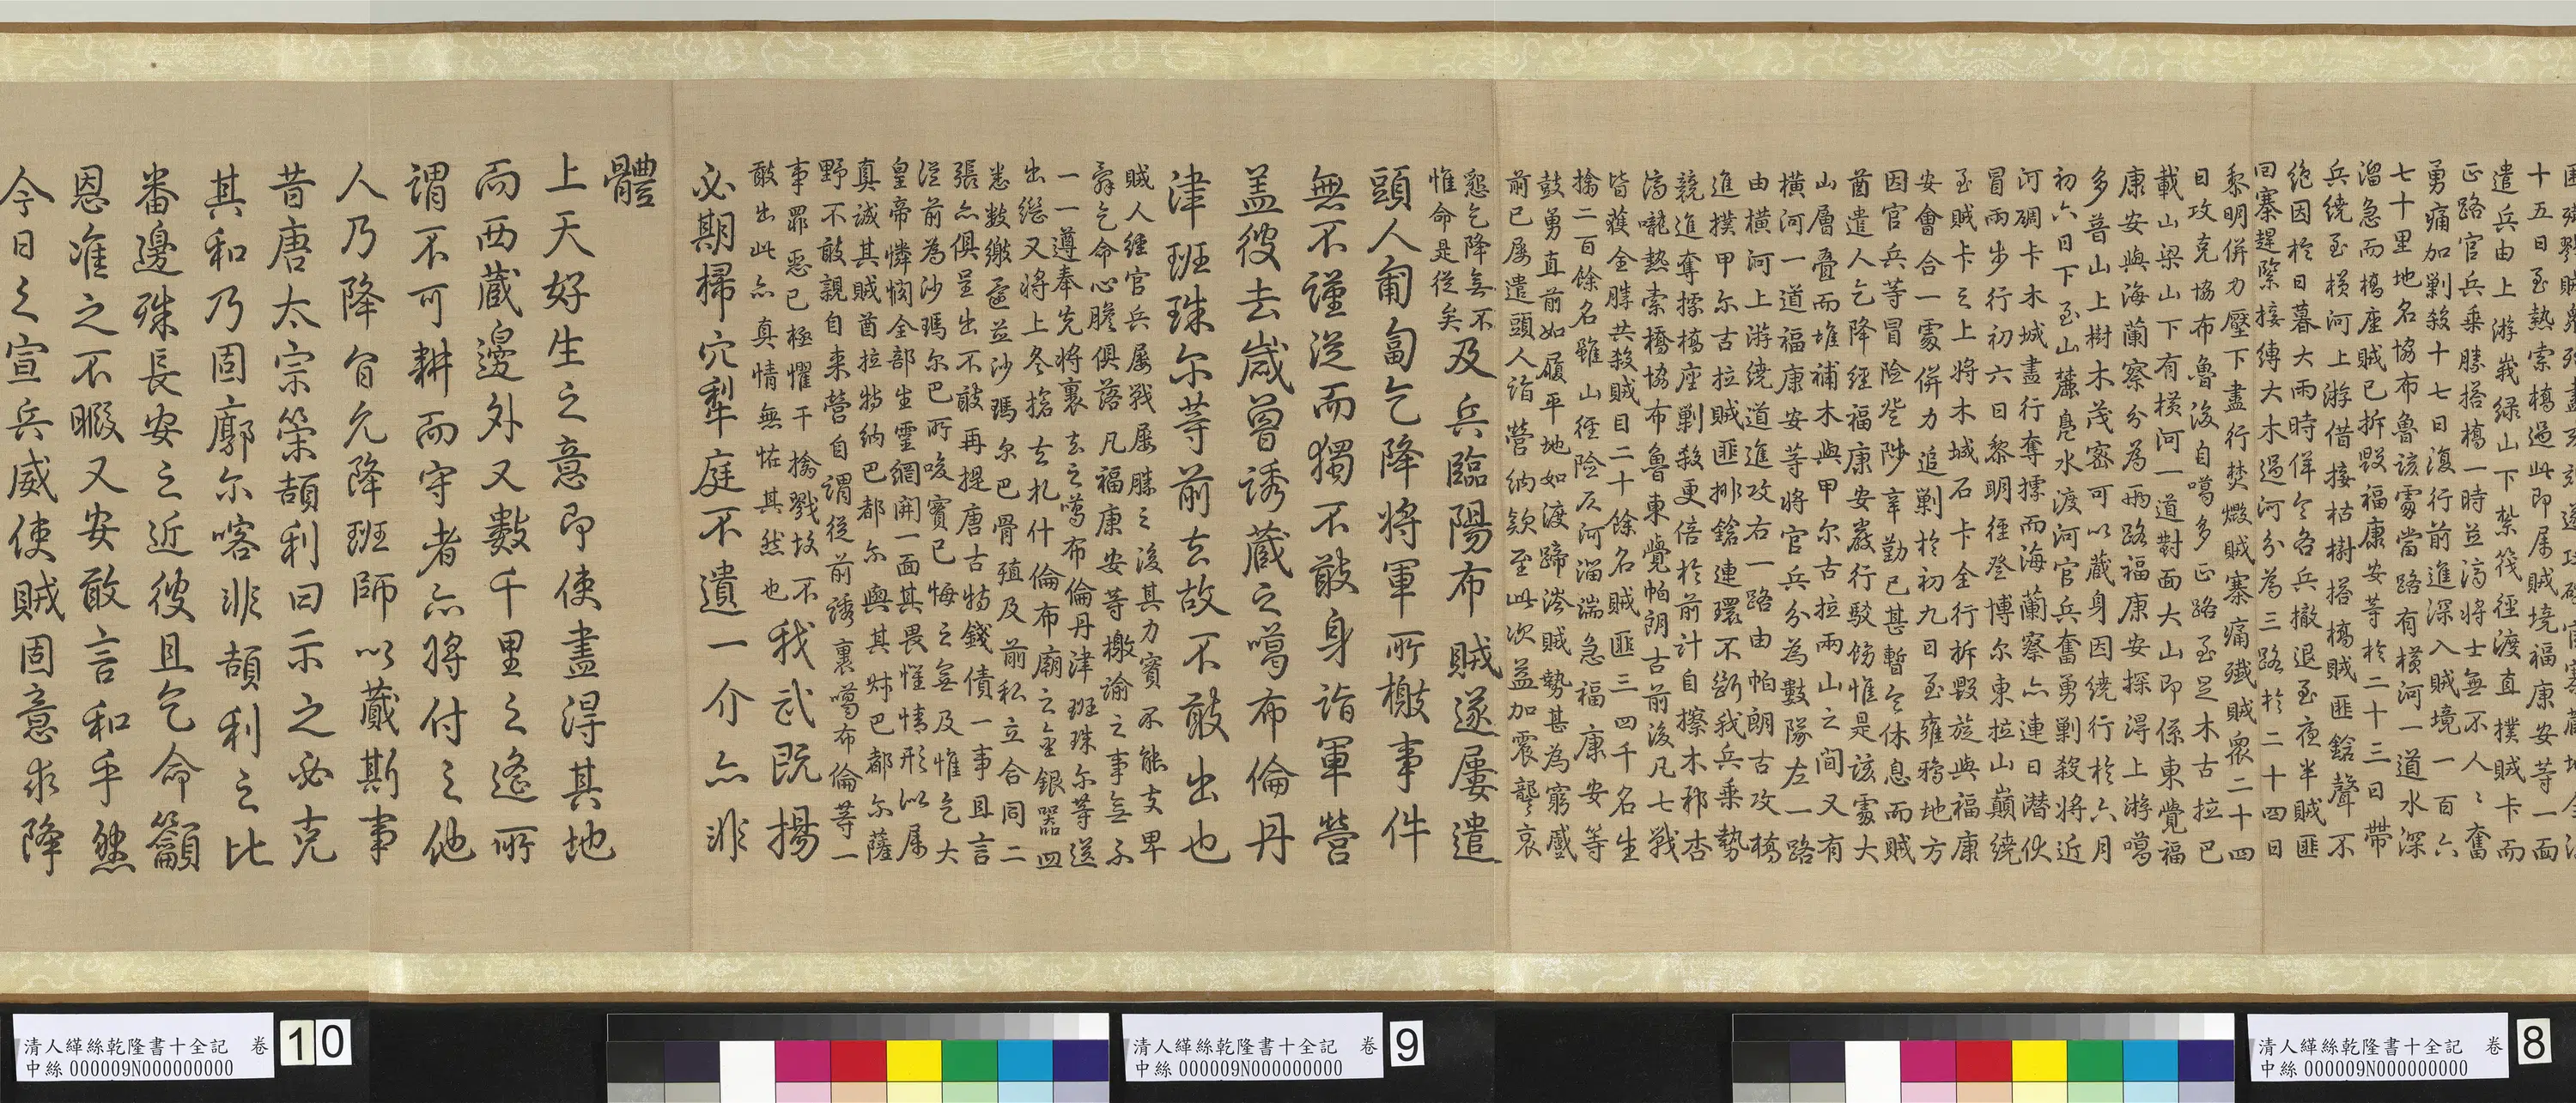 十五日至熱索橋過此即屬賊境福康安等一面
遣兵由上游峩綠山下紮筏徑渡直撲賊卡而
正路官兵乘勝搭橋一時並濟將士無不人〻奮
勇痛加剿殺十七日復行前進深入賊境一百六
七十里地名協布魯該處當路有橫河一道水深
溜急而橋座賊已拆毀福康安等於二十三日帶
兵繞至橫河上游借接枯樹搭橋賊匪鎗聲不
絶因於日暮大雨時佯令各兵撤退至夜半賊匪
回寨趕緊接縛大木過河分為三路於二十四日
黎明併力壓下盡行焚燬賊寨痛殲賊衆二十四
日攻克協布魯後自噶多正路至足木古拉巴
載山梁山下有橫河一道對面大山即係東覺福
康安與海蘭察分為兩路福康安探得上游噶
多普山上樹木茂密可以藏身因繞行於六月
初六日下至山麓鳧水渡河官兵奮勇剿殺將近
河碉卡木城盡行奪據而海蘭察亦連日潛伏
冒雨步行初六日黎明徑登博尔東拉山巔繞
至賊卡之上將木城石卡全行拆毀旋與福康
安會合一處併力追剿於初九日至雍鴉地方
因官兵等冒險登陟辛勤已甚暫令休息而賊
酋遣人乞降經福康安嚴行駁飭惟是該處大
山層疊而堆補木與甲尔古拉兩山之間又有
橫河一道福康安等將官兵分為數隊左一路
由橫河上游繞道進攻右一路由帕朗古攻橋
進撲甲尔古拉賊匪排鎗連環不斷我兵乘勢
競進奪據橋座剿殺更倍於前計自擦木邦杏
濟嚨熱索橋協布魯東覺帕朗古前後凡七戰
皆獲全勝共殺賊目二十餘名賊匪三四千名生
擒二百餘名雖山徑險仄河溜湍急福康安等
鼓勇直前如履平地如渡蹄涔賊勢甚為窮蹙
前已屢遣頭人詣營納欵至此次益加震讋哀
懇乞降無不
惟命是從矣
及兵臨陽布賊遂屢遣
頭人匍匐乞降將軍所檄事件
無不謹從而獨不敢身詣軍營
盖彼去嵗曾誘藏之噶布倫丹
津班珠尔等前去故不敢出也
賊人經官兵屢戰屢勝之後其力實不能支卑
辭乞命心膽俱落凡福康安等檄諭之事無不
一一遵奉先將裹去之噶布倫丹津班珠尔等送
出繼又將上冬搶去扎什倫布廟之金銀器皿
悉數繳還並沙瑪尔巴骨殖及前私立合同二
張亦俱呈出不敢再提唐古特錢債一事且言
從前為沙瑪尔巴所唆實已悔之無及惟乞大
皇帝憐憫全部生靈網開一面其畏惟情形似屬
真誠其賊酋拉特納巴都尔與其叔巴都尔薩
野不敢親自来營自謂從前誘裹噶布倫等一
事罪惡已極懼干擒戮故不
敢出此亦真情無怪其然也
我武既揚
必期掃穴犂庭不遺一介亦非
體
上天好生之意即使盡得其地
而西藏邊外又數千里之遙所
謂不可耕而守者亦將付之他
人乃降旨允降班師以蕆斯事
昔唐太宗策頡利曰示之必克
其和乃固廓尔喀非頡利之比
番邊殊長安之近彼且乞命籲
恩准之不暇又安敢言和乎然
今日之宣兵威使賊固意求降
清人緙絲乾隆書十全記 卷
中絲 000009N000000000
8
清人緙絲乾隆書十全記 卷
中絲 000009N000000000
9
清人緙絲乾隆書十全記 卷
中絲 000009N000000000
10